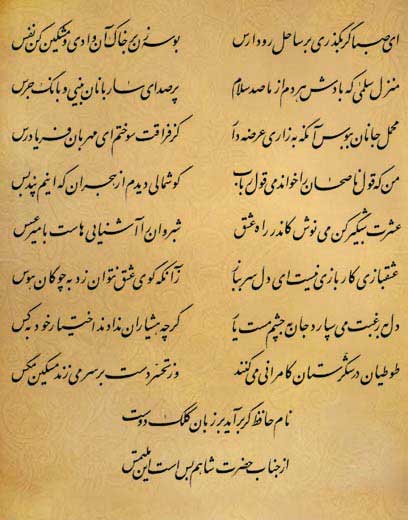 ای صبا گر بگذری بر ساحل رود ارس بوسه زن بر خاک آن وادی و مشکین کن نفس
منزل سلمی که بادش هر دم از ما صد سلام پر صدای ساربانان بینی و بانگ جرس
محمل جانان ببوس آنگه به زاری عرضه دار کز فراقت سوختم ای مهربان فریاد رس
من که قول ناصحان را خواندمی قول رباب گوشمالی دیدم از هجران که اینم پند بس
عشرت شبگیر کن می نوش کاندر راه عشق شب روان را آشنایی هاست با میر عسس
عشقبازی کار بازی نیست ای دل سر بباز زانکه گوی عشق نتوان زد به چوگان هوس
دل به رغبت می سپارد جان به چشم مست یار گرچه هشیاران ندادند اختیار خود به کس
طوطیان در شکرستان کامرانی می کنند وز تحسر دست بر سر می زند مسکین مگس
نام حافظ گر برآید بر زبان کلک دوست
از جناب حضرت شاهم بس است این ملتمس